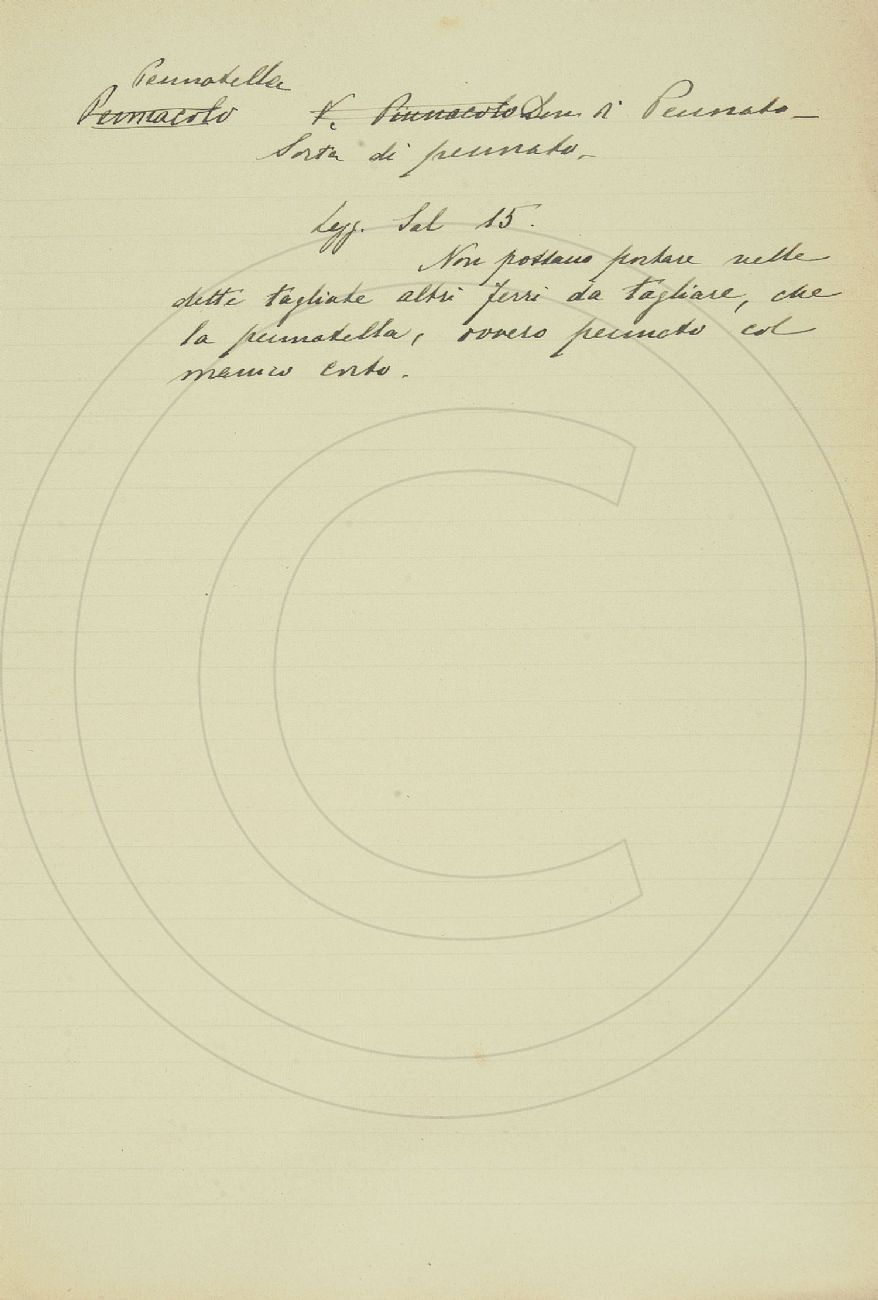 Pennatella
Pennacolo V. Pinnacolo Dim. di Pennato_
Sorta di pennato._
Legg. Sal 15.
Non possano portare nelle
dette tagliate altri ferri da tagliare, che
la pennatella, ovvero pennato col
manico corto.